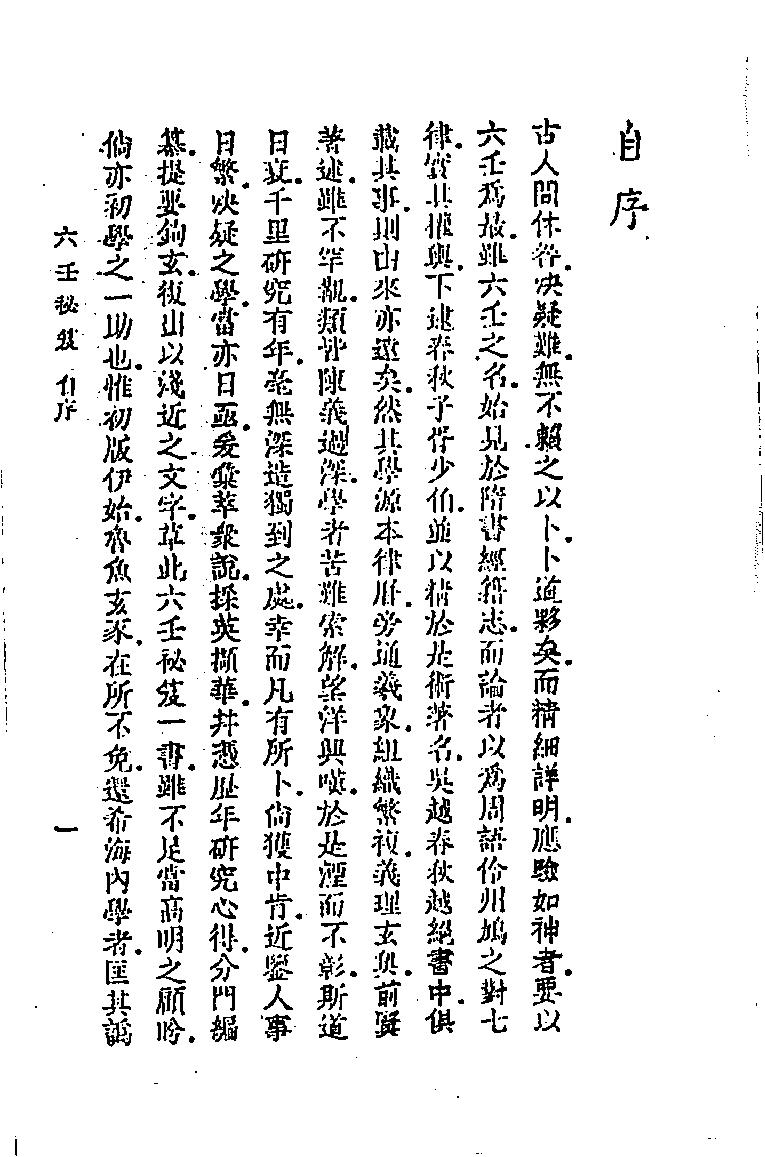 自序
古人問休咎。决疑難。無不賴之以卜。卜道夥矣。而精細詳明。應驗如神者。要以
六壬爲最。雖六壬之名。始見於隋書經籍志。而論者以爲周語伶州鳩之對七
律。實其權輿。下逮春秋子胥少伯。並以精於是術著名。吳越春秋越絕書中。俱
載其事。則由來亦遠矣。然其學源本律曆。旁通羲象。組織繁複。義理玄奥。前賢
著述。雖不罕覯。類皆陳義過深。學者苦難索解。望洋興嘆。於是湮而不彰。斯道
日衰。千里研究有年。毫無深造獨到之處。幸而凡有所卜。倘獲中肯。近鑒人事
日繁。决疑之學。當亦日亟。爰彙萃衆說。採英擷華。幷憑歷年研究心得。分門編
纂。提要鉤玄。復出以淺近之文字。草此六壬祕笈一書。雖不足當高明之顧盼。
倘亦初學之一助也。惟初版伊始。魯魚玄豕。在所不免。還希海內學者。匡其譌
六壬祕笈 自序
一